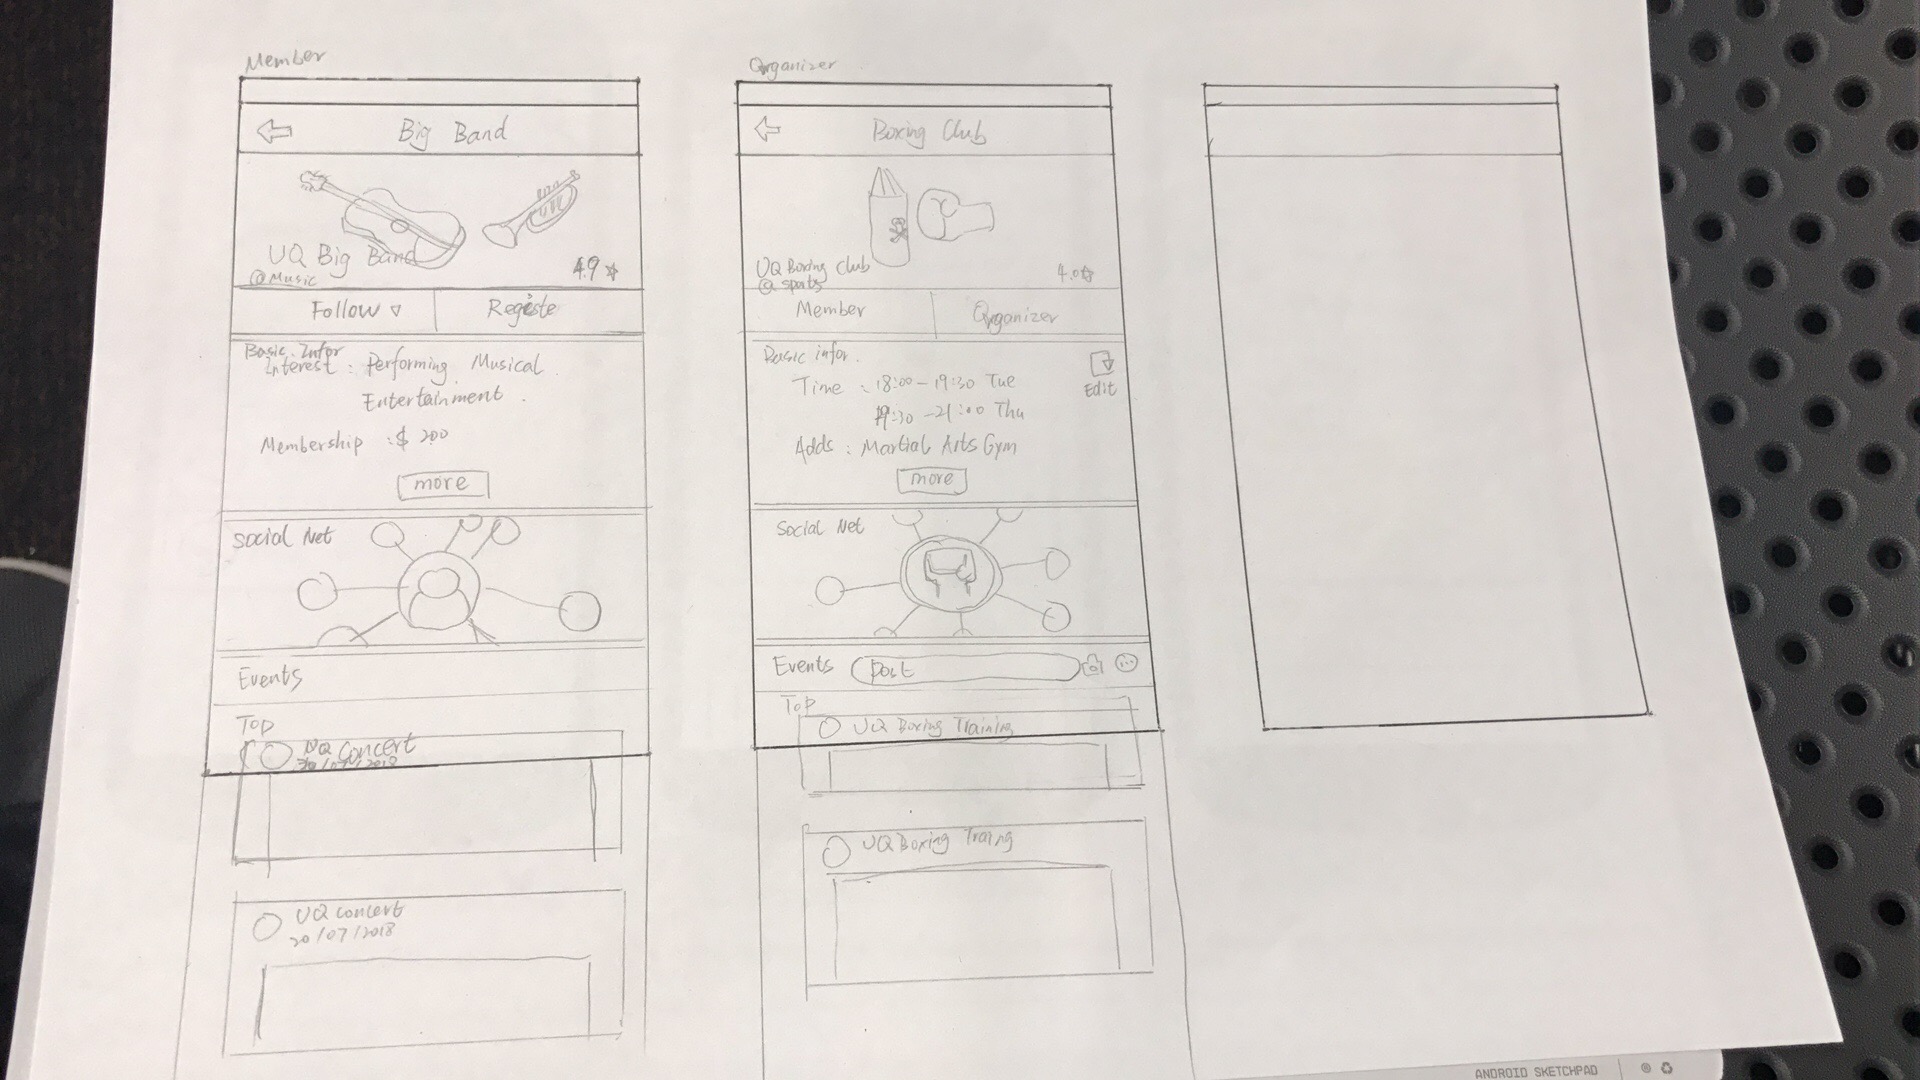 Member
Big Band
UQ Big Band
@Music
4.9
Follow
Registe
Basic Infor
Interest : Performing Musical
Entertainment
Membership : $ 200
more
Social Net
Events
Top
UQ Concert
20/07/2018
UQ concert
20/07/2018
Organizer
Boxing Club
UQ Boxing Club
@ sports
4.0
Member
Organizer
Basic infor.
Time : 18:00 - 19:30 Tue
19:30 - 21:00 Thu
Edit
Adds : Martial Arts Gym
more
Social Net
Events
Post
Top
UQ Boxing Training
UQ Boxing Traing
ANDROID SKETCHPAD